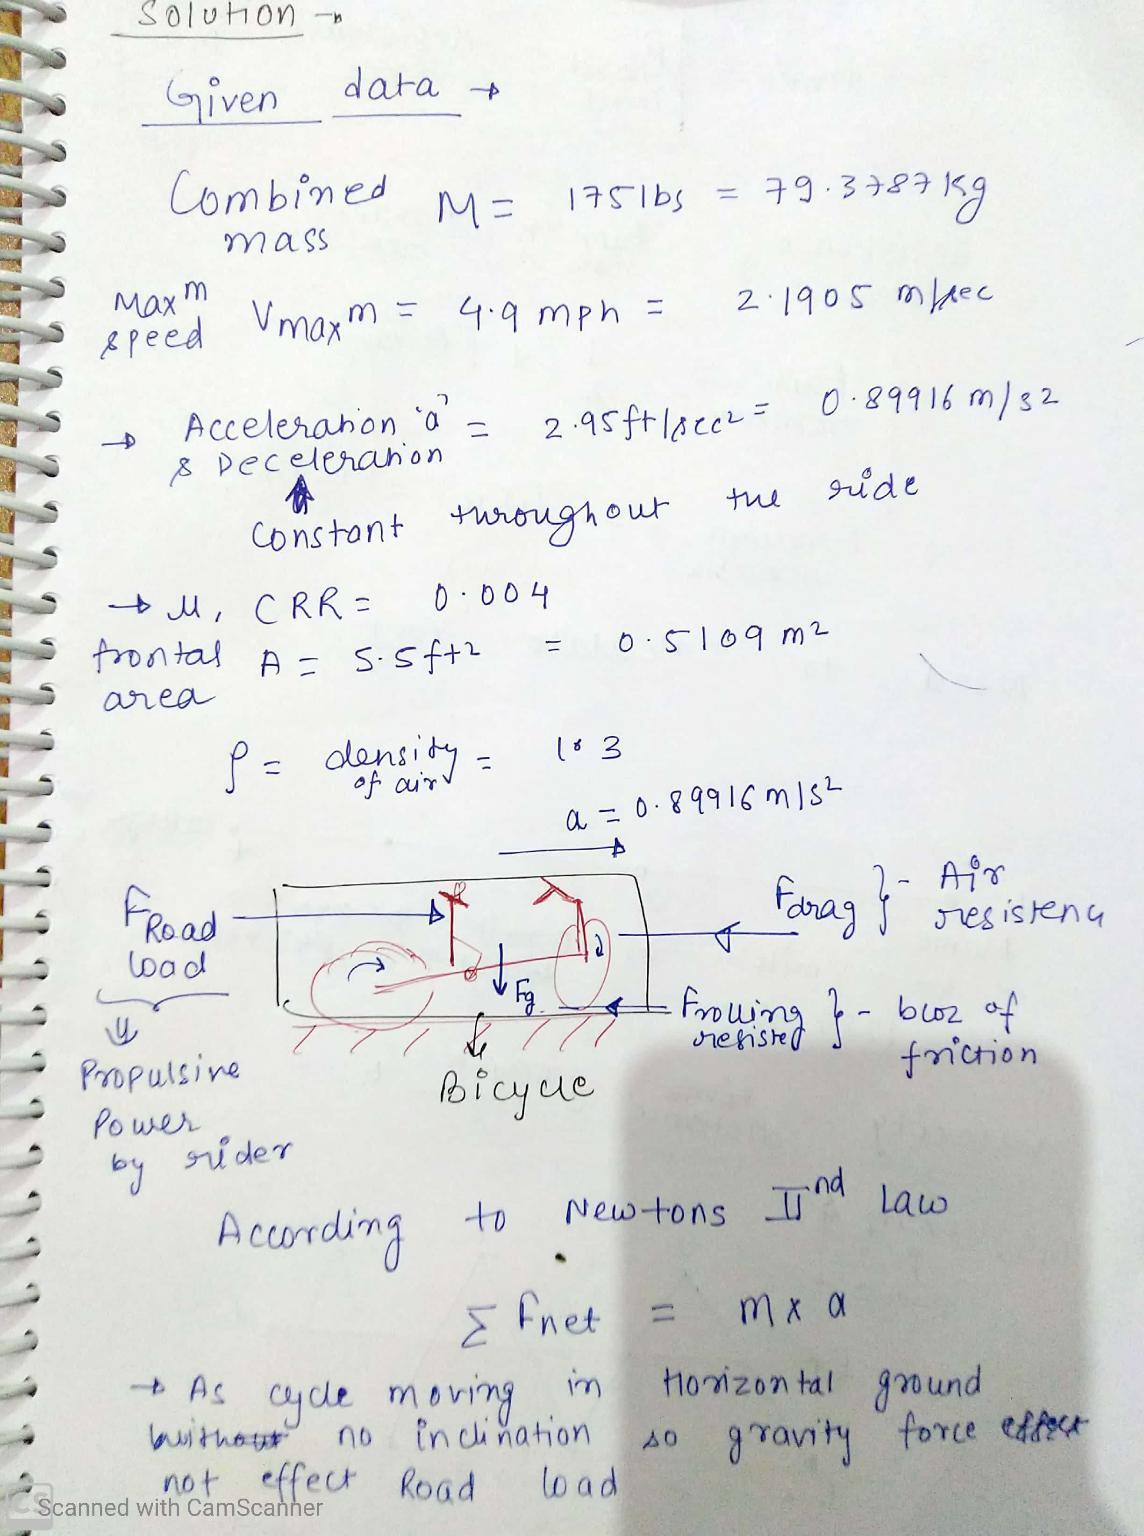 Solution →
Given data →
Combined mass M = 175 lbs = 79.3787 kg
Maxm speed Vmaxm = 4.9 mph = 2.1905 m/sec
→ Acceleration 'a' = 2.95 ft/sec2 = 0.89916 m/s2
& Deceleration
Constant throughout the ride
→ μ, CRR = 0.004
frontal area A = 5.5 ft2 = 0.5109 m2
ρ = density of air = 1.3
a = 0.89916 m/s2
FRoad load
Fdrag } - Air resistence
Fg
Frolling resisted } - bcoz of friction
Bicycle
Propulsive
Power
by rider
According to Newtons IInd Law
Σ Fnet = m x a
→ As cycle moving in Horizontal ground
no inclination so gravity force effect
not effect Road load
CS Scanned with CamScanner